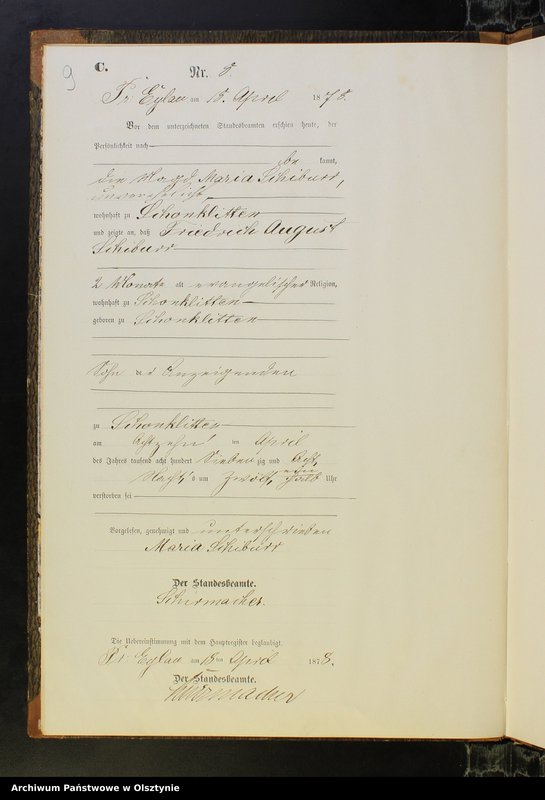 9
C.
Nr. 8.
Pr. Eylau am 18. April 1878.
Vor dem unterzeichneten Standesbeamten erschien heute, der
Persönlichkeit nach
be kannt,
die Magd Maria Schiburr,
unverehelicht,
wohnhaft zu Schönklitten
und zeigte an, daß Friedrich August
Schiburr
2 Monate alt evangelischer Religion,
wohnhaft zu Schönklitten
geboren zu Schönklitten
Sohn der Anzeigenden
zu Schönklitten
am Achtzehn im April
des Jahres tausend acht hundert Sieben zig und Acht,
Nachts um zwölf Uhr
verstorben sei
Vorgelesen, genehmigt und unterschrieben
Maria Schiburr
Der Standesbeamte.
Schirmacher.
Die Uebereinstimmung mit dem Hauptregister beglaubigt.
Pr. Eylau am 18 ten April 1878.
Der Standesbeamte.
Schirmacher
Archiwum Państwowe w Olsztynie